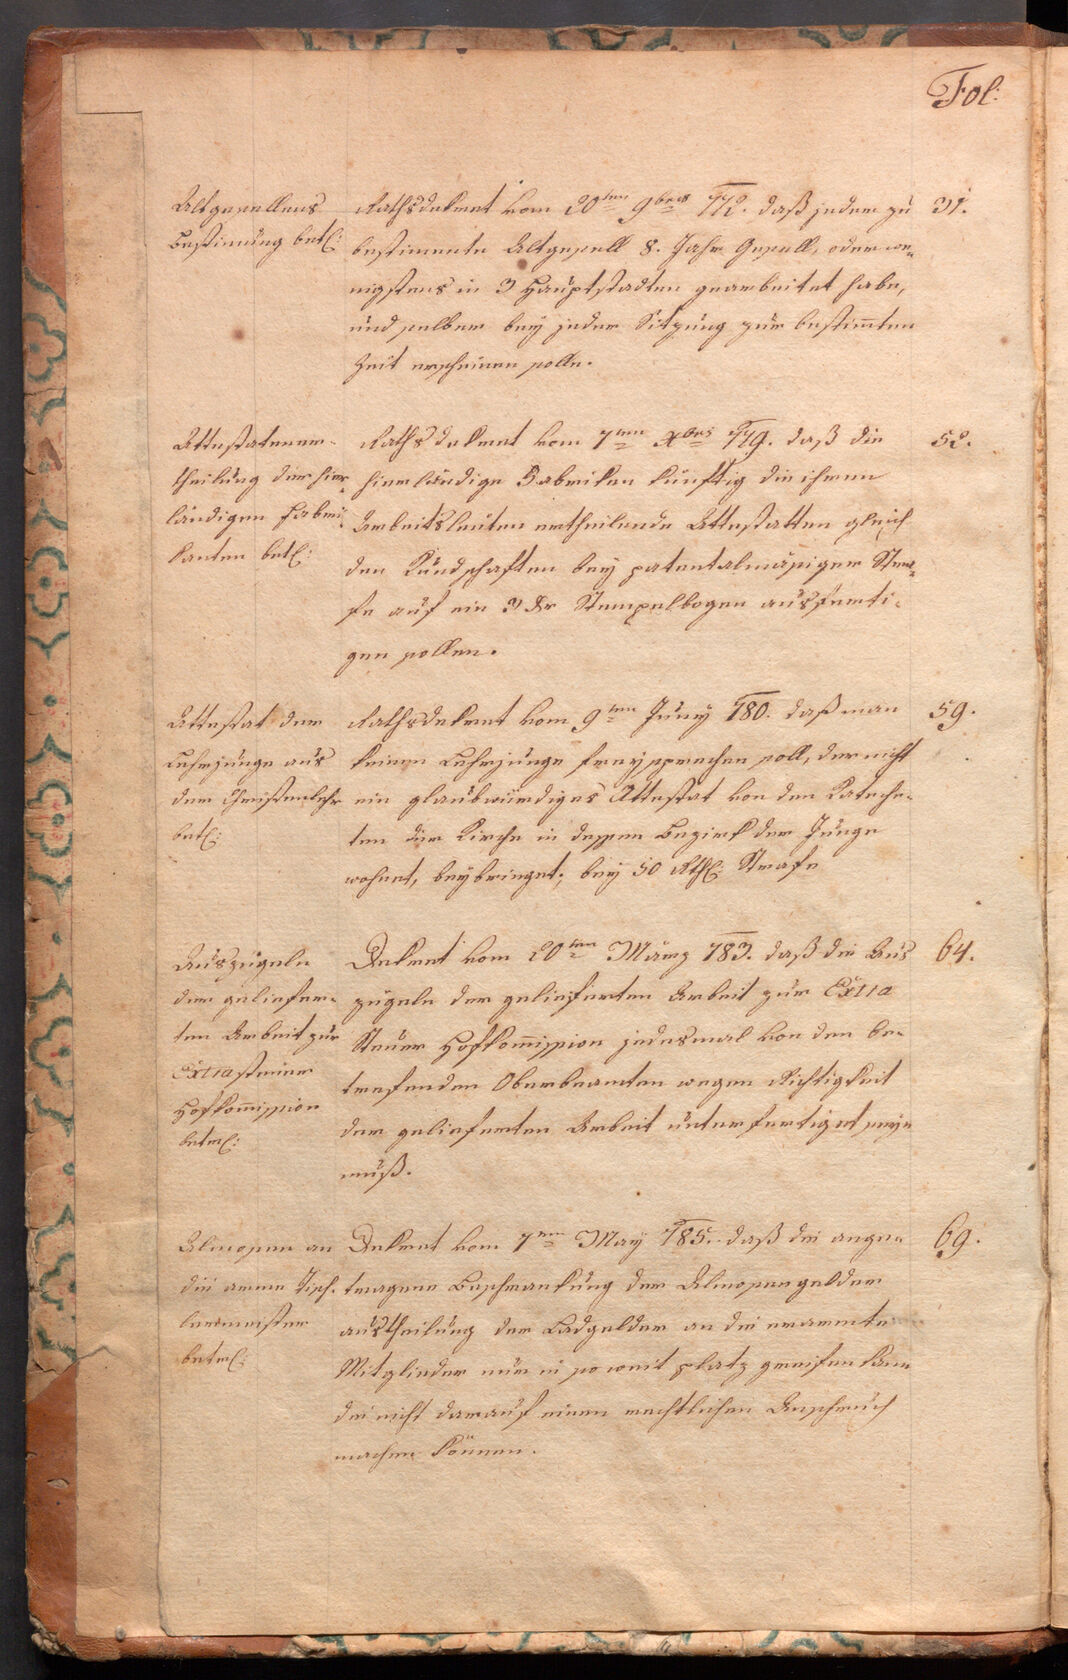 Fol:
Altgesellens
Bestimung betl:
Rathsdekret vom 20ten 9bris 772. daß jeder zu
bestimmte Altgesell 8. Jahr Gesell, oder we-
nigstens in 3 Hauptstadten gearbeitet habe,
und selber bey jeder Sitzung zur bestimten
Zeit erscheinen solle.
31.
Attestatener-
theilung der hier-
ländigen Fabri-
kanten betl:
Raths dekret vom 7ten Xbris 779. daß die
hierländige Fabriken künftig die ihren
Arbeitsleuten ertheilende Attestatten gleich
den Kundschaften bey patentalmäsiger Stra-
fe auf ein 3 Kr Stempelbogen ausferti-
gen sollen.
52.
Attestat der
Lehrjunge aus
der Christenlehr
betl:
Rathsdekret vom 9ten Juny 780. daß man
keinen Lehrjunge freysprechen soll, der nicht
ein glaubwürdiges Attestat von den Kateche-
ten der Kirche in dessen Bezirk der Junge
wohnet, beybringet; bey 50 Rthl: Strafe
59.
Auszügeln
der geliefer-
ten Arbeit zur
Extrasteuer
Hofkom̄ission
betrl:
Dekret vom 20ten März 783. daß die Aus
zügeln der gelieferten Arbeit zur Extra
Steuer Hofkom̄ission jedesmal von den be-
trefenden Oberbeamten wegen Richtigkeit
der gelieferten Arbeit unterfertiget seyn
muß.
64.
Almosen an
die arme Tisch-
lermeister
betrl:
Dekret vom 7ten May 785. daß die ange-
tragene Beschrankung der Almosengelder
austheilung der Ladgelder an die erarmte
Mitglieder nur in so weit platz greifen kann
die nicht darauf einen rechtlichen Anspruch
machen können.
69.